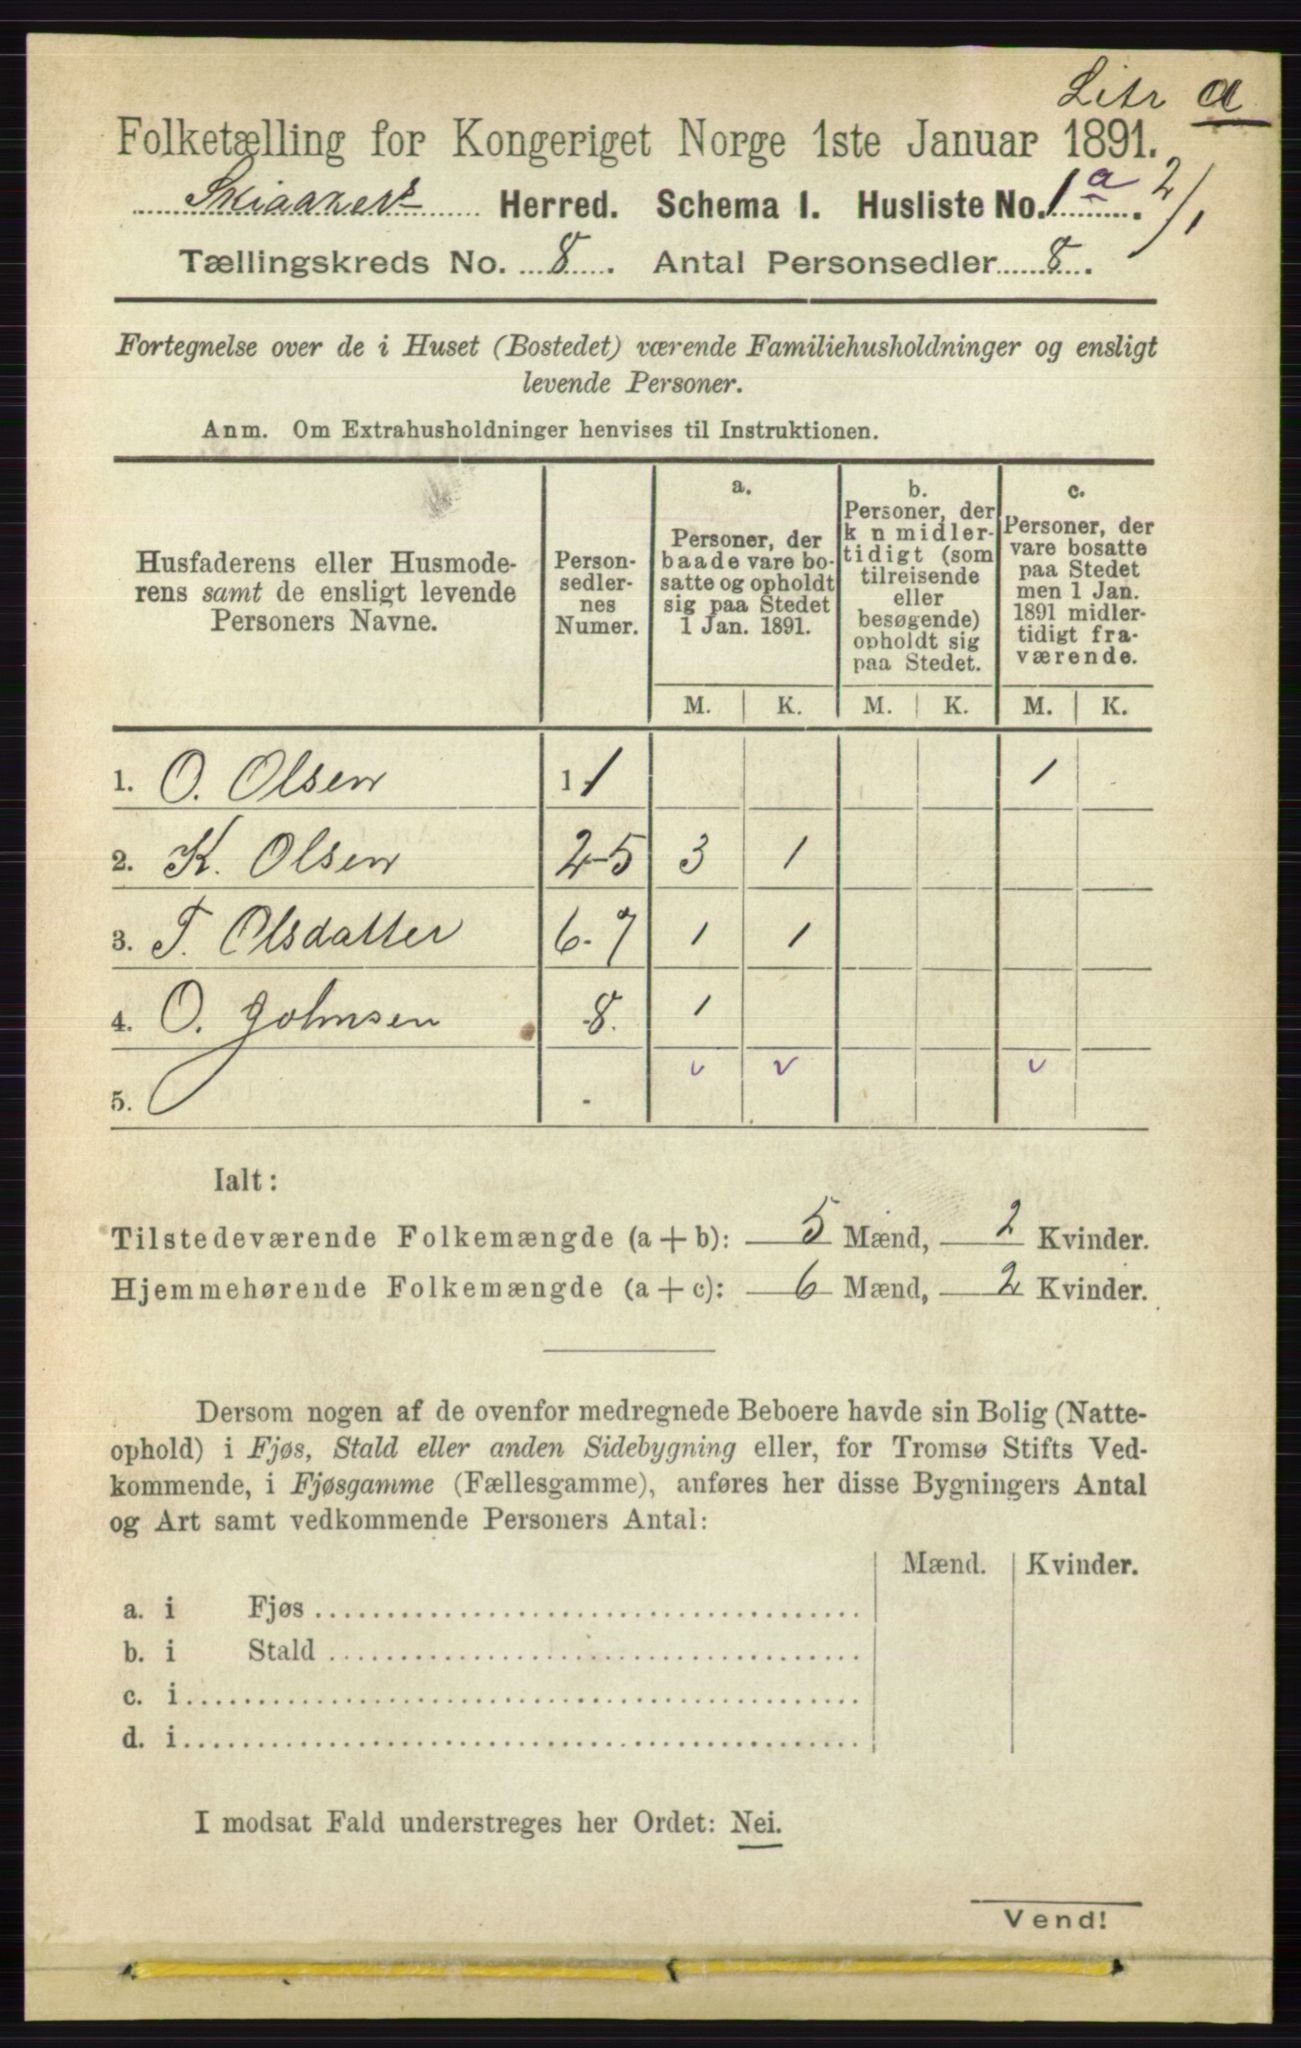 Litr a
Folketælling for Kongeriget Norge 1ste Januar 1891.
Skiaakers Herred. Schema I. Husliste No. 1a 2/1
Tællingskreds No. 8. Antal Personsedler 8.
Fortegnelse over de i Huset (Bostedet) værende Familiehusholdninger og ensligt
levende Personer.
Anm. Om Extrahusholdninger henvises til Instruktionen.
Husfaderens eller Husmode-
rens samt de ensligt levende
Personers Navne.
Person-
sedler-
nes
Numer.
a.
Personer, der
baade vare bo-
satte og opholdt
sig paa Stedet
1 Jan. 1891.
b.
Personer, der
k n midler-
tidigt (som
tilreisende
eller
besøgende)
opholdt sig
paa Stedet.
c.
Personer, der
vare bosatte
paa Stedet
men 1 Jan.
1891 midler-
tidigt fra-
værende.
M. K. M. K. M. K.
1. O. Olsen 1 1 1
2. K. Olsen 2-5 3 1
3. T. Olsdatter 6-7 1 1
4. O. Johnsen 8. 1
v v v
5. -
Ialt:
Tilstedeværende Folkemængde (a + b): 5 Mænd, 2 Kvinder.
Hjemmehørende Folkemængde (a + c): 6 Mænd, 2 Kvinder.
Dersom nogen af de ovenfor medregnede Beboere havde sin Bolig (Natte-
ophold) i Fjøs, Stald eller anden Sidebygning eller, for Tromsø Stifts Ved-
kommende, i Fjøsgamme (Fællesgamme), anføres her disse Bygningers Antal
og Art samt vedkommende Personers Antal:
Mænd. Kvinder.
a. i Fjøs
b. i Stald
c. i
d. i
I modsat Fald understreges her Ordet: Nei.
Vend!